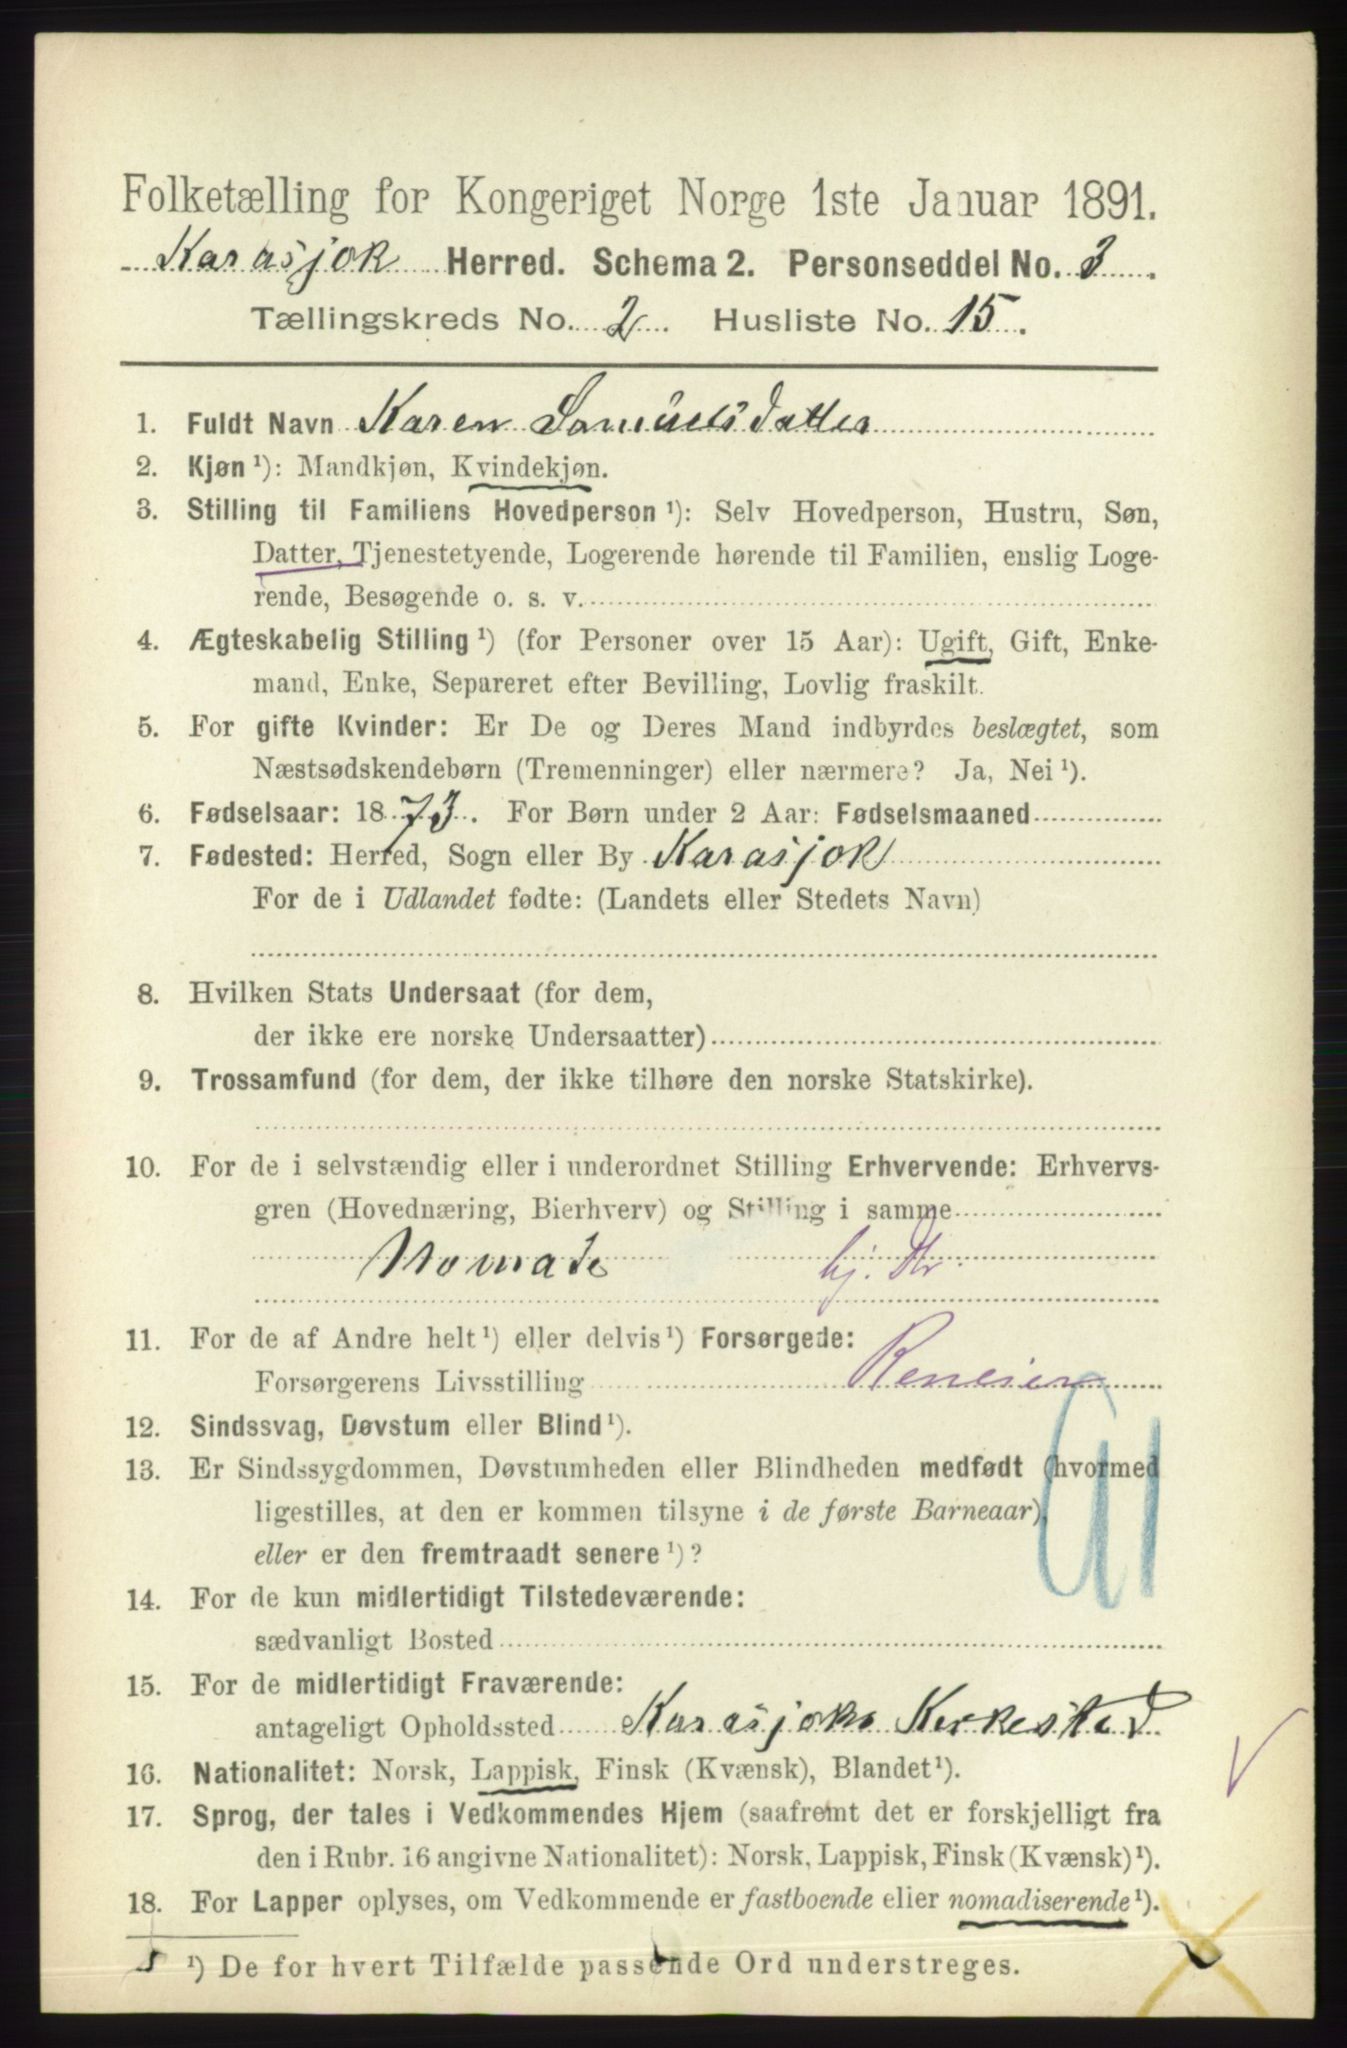 Folketælling for Kongeriget Norge 1ste Januar 1891.
Karasjok Herred. Schema 2. Personseddel No. 3.
Tællingskreds No. 2. Husliste No. 15.
1. Fuldt Navn Karen Samuelsdatter
2. Kjøn ¹): Mandkjøn, Kvindekjøn.
3. Stilling til Familiens Hovedperson ¹): Selv Hovedperson, Hustru, Søn,
Datter, Tjenestetyende, Logerende hørende til Familien, enslig Loge-
rende, Besøgende o. s. v.
4. Ægteskabelig Stilling ¹) (for Personer over 15 Aar): Ugift, Gift, Enke-
mand, Enke, Separeret efter Bevilling, Lovlig fraskilt.
5. For gifte Kvinder: Er De og Deres Mand indbyrdes beslægtet, som
Næstsødskendebørn (Tremenninger) eller nærmere? Ja, Nei ¹).
6. Fødselsaar: 1873. For Børn under 2 Aar: Fødselsmaaned
7. Fødested: Herred, Sogn eller By Karasjok
For de i Udlandet fødte: (Landets eller Stedets Navn)
8. Hvilken Stats Undersaat (for dem,
der ikke ere norske Undersaatter)
9. Trossamfund (for dem, der ikke tilhøre den norske Statskirke).
10. For de i selvstændig eller i underordnet Stilling Erhvervende: Erhvervs-
gren (Hovednæring, Bierhverv) og Stilling i samme
Nomade hj. Dtr
11. For de af Andre helt ¹) eller delvis ¹) Forsørgede:
Forsørgerens Livsstilling Reneier
12. Sindssvag, Døvstum eller Blind ¹).
13. Er Sindssygdommen, Døvstumheden eller Blindheden medfødt (hvormed
ligestilles, at den er kommen tilsyne i de første Barneaar),
eller er den fremtraadt senere ¹)?
14. For de kun midlertidigt Tilstedeværende:
sædvanligt Bosted
15. For de midlertidigt Fraværende:
antageligt Opholdssted Karasjoks Kirkested
16. Nationalitet: Norsk, Lappisk, Finsk (Kvænsk), Blandet ¹).
17. Sprog, der tales i Vedkommendes Hjem (saafremt det er forskjelligt fra
den i Rubr. 16 angivne Nationalitet): Norsk, Lappisk, Finsk (Kvænsk) ¹).
18. For Lapper oplyses, om Vedkommende er fastboende eller nomadiserende ¹).
¹) De for hvert Tilfælde passende Ord understreges.